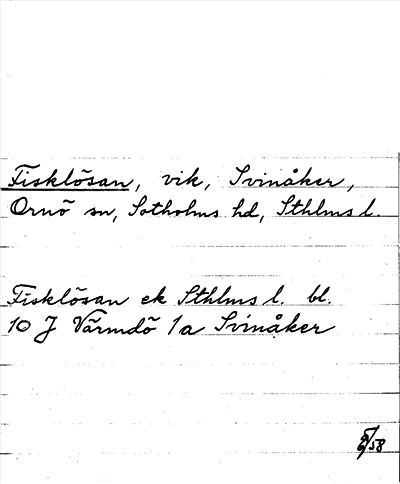 Fisklösan, vik, Svinåker,
Ornö sn, Sotholms hd, Sthlms l.
Fisklösan ek Sthlms l. bl.
10 J Värmdö 1a Svinåker